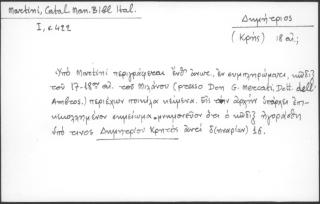 Martini, Catal Man. Bibl Ital.
I, σ 422
Δημήτριος
(Κρής) 18 αἰ.;
Ὑπὸ Martini περιγράφεται ἔνθ' ἀνωτ., ἐν συμπληρώματι, κῶδιξ
τοῦ 17-18ου αἰ. τοῦ Μιλάνου (presso Don G. Mercati, Dott. dell'
Ambros.) περιέχων ποικίλα κείμενα. Εἰς τὴν ἀρχὴν ὑπάρχει ἐπι-
κεκολλημένον σημείωμα μνημονεῦον ὅτι ὁ κῶδιξ ἠγοράσθη
ὑπό τινος Δημητρίου Κρητὸς ἀντὶ δ(ηναρίων) 16.